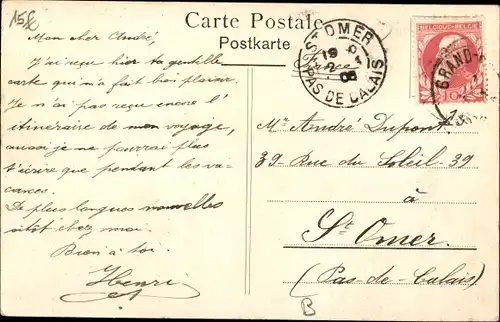 15k
Carte Postale
Postkarte
Mon cher André,
J'ai reçu hier ta gentille
carte qui m'a fait bie plaisir.
Je n'ai pas reçu encore l'
itinéraire de mon voyage,
aussi je ne pourrai plus
t'écrire que pendant les va-
cances.
De plus longues nouvelles
sitôt chez moi.
Bien à toi.
Henri
ST OMER
PAS DE CALAIS
BELGIQUE-BELGIË
GRAND-
10
France
Mr André Dupont
39 Rue du Soleil 39
à
St Omer
(Pas-de-Calais)
B